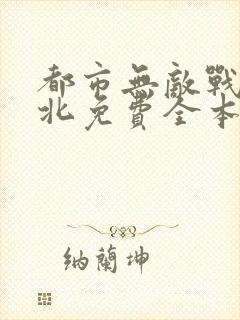 都市無敵戰
北免費全本
納蘭坤